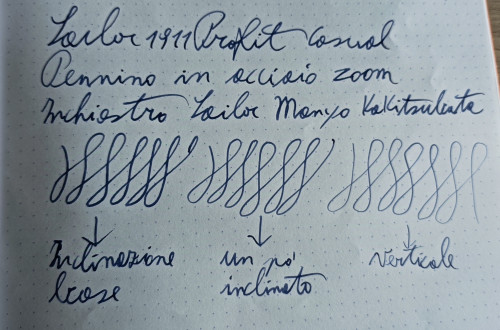 Sailor 1911 Profit Casual
Pennino in acciaio zoom
Inchiostro Sailor Manyo Kakitsubata
Inclinazione un po' verticale
base inclinato